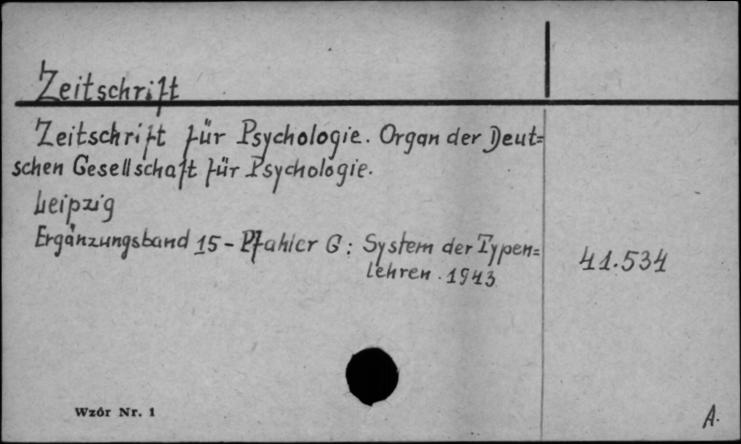 Zeitschrift
Zeitschrift für Psychologie. Organ der Deut=
schen Gesellschaft für Psychologie.
Leipzig
Ergänzungsband 15 - Pfahler G: System der Typen=
lehren. 1943
41.534
Wzór Nr. 1
A.